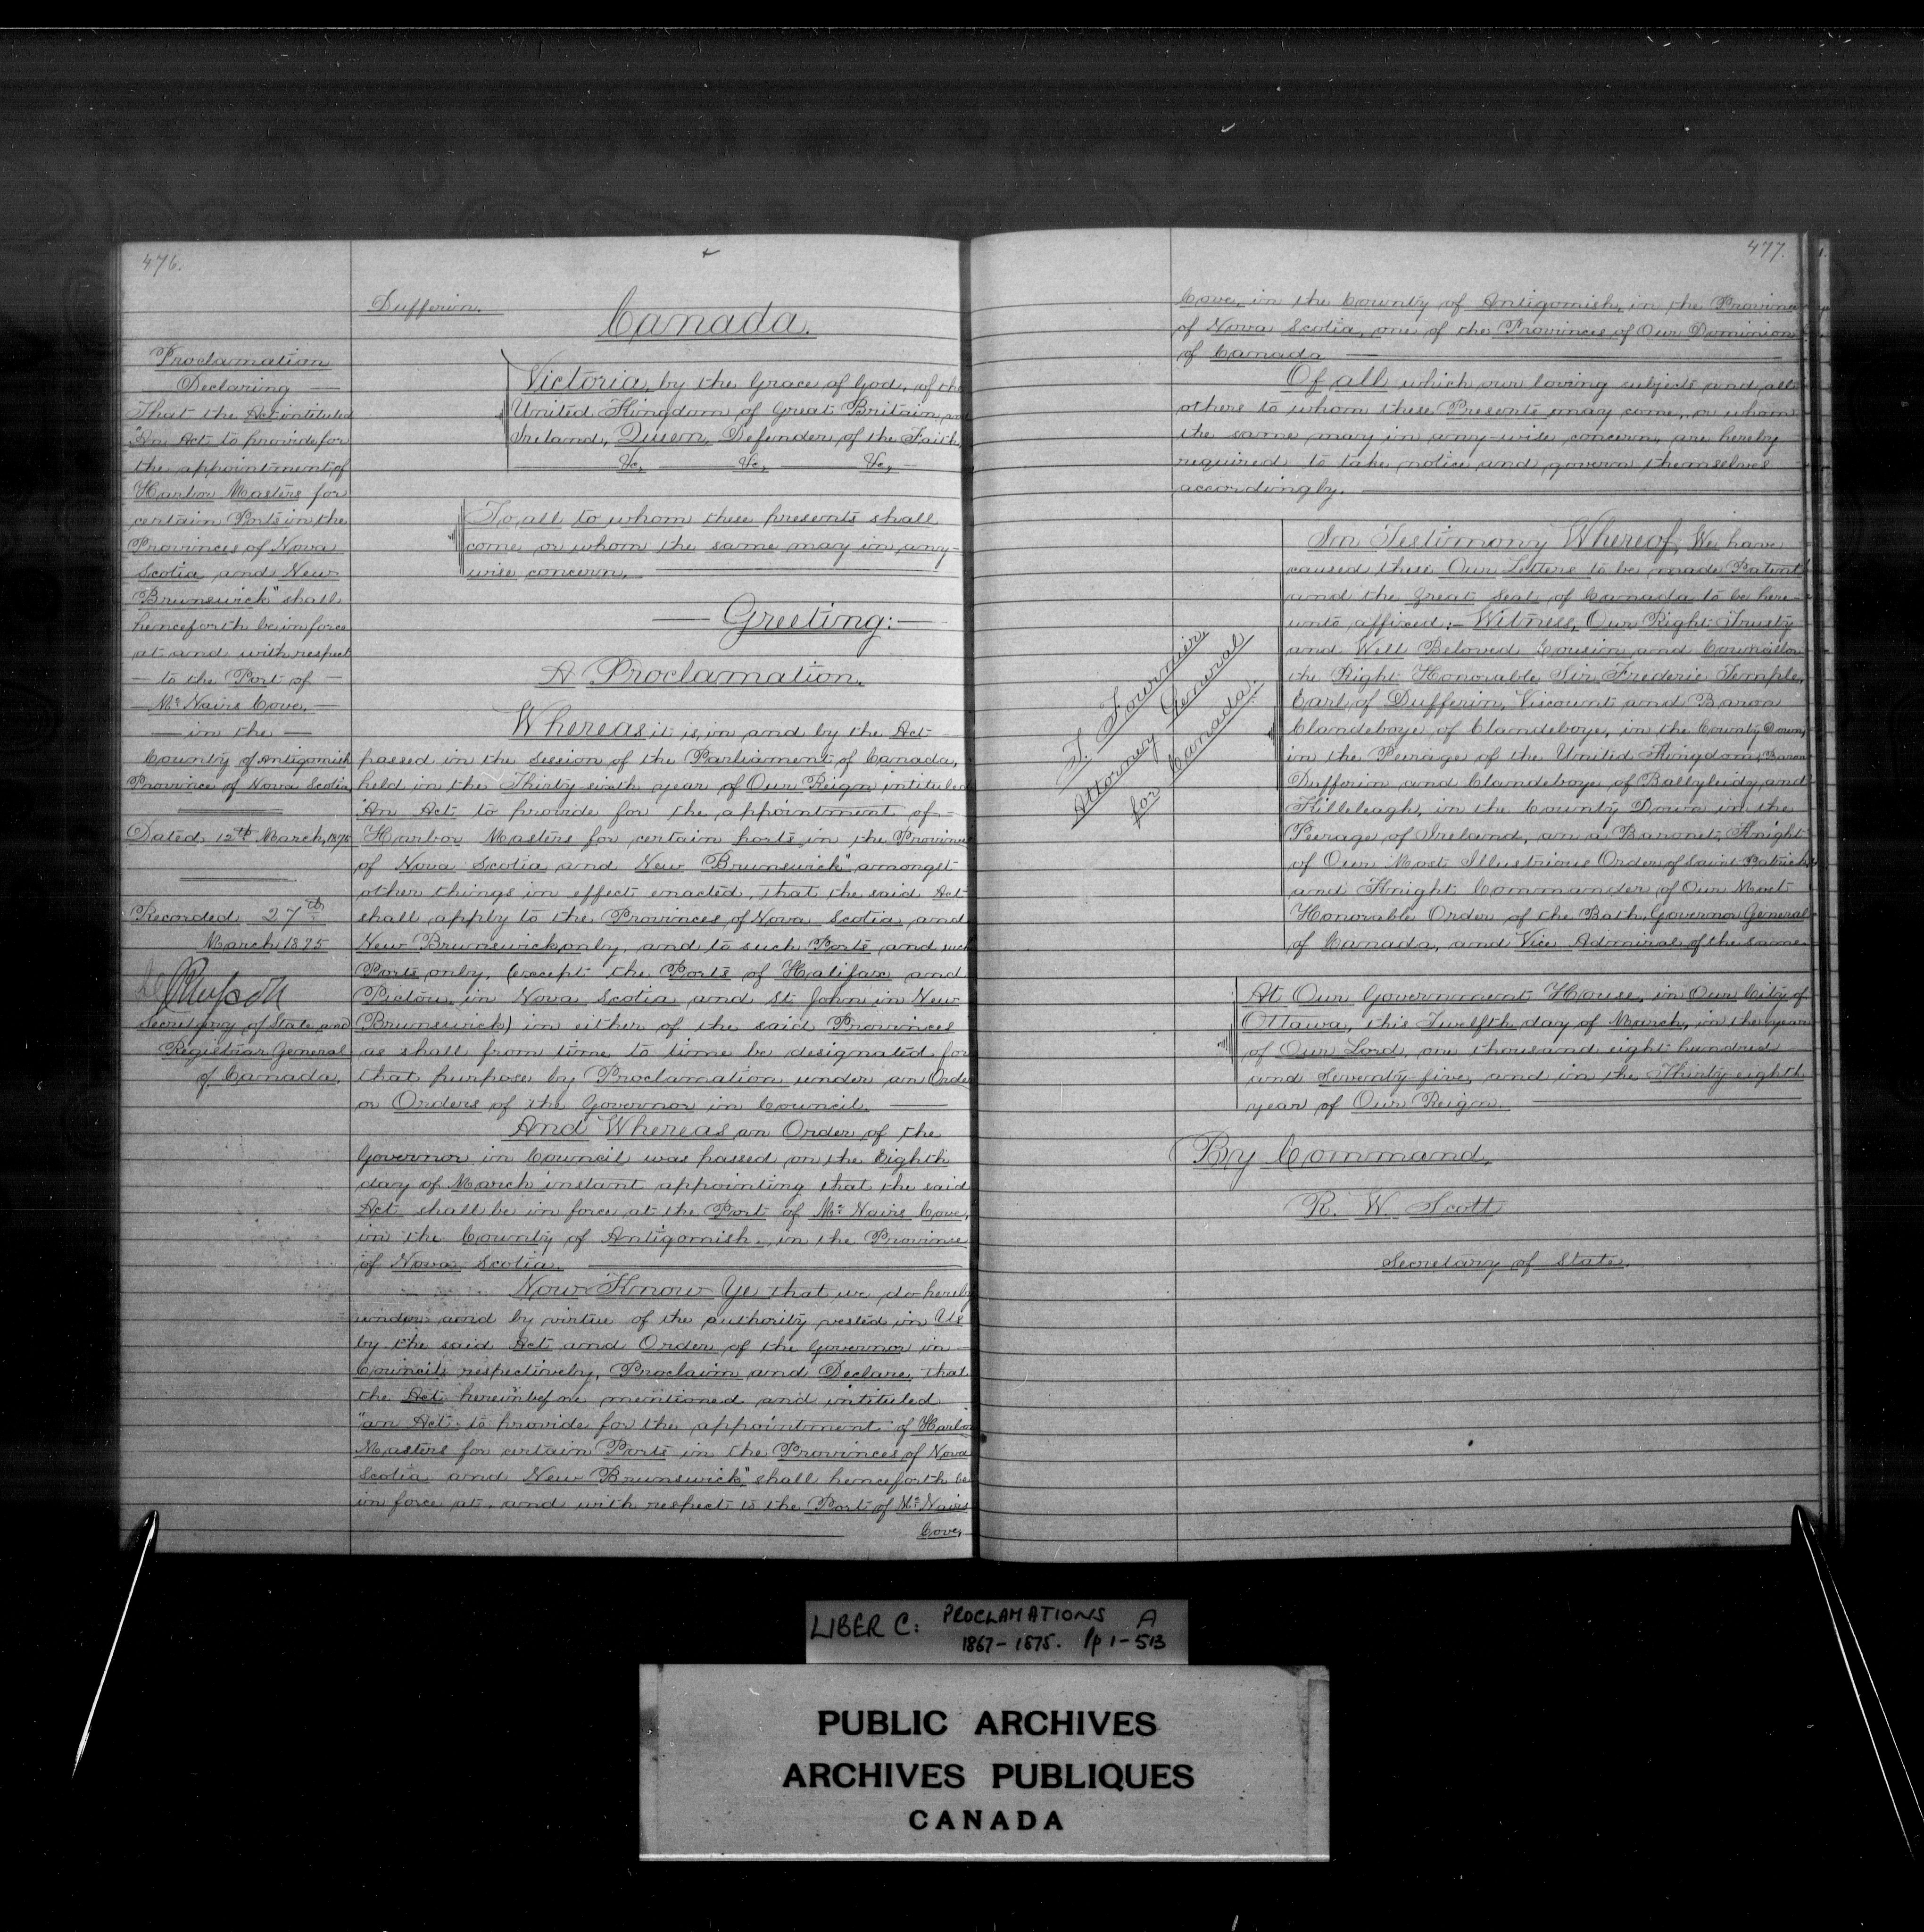 476.
Dufferin.
Canada.
Proclamation
Declaring
That the Act intituled
"An Act to provide for
the appointment of
Harbor Masters for
certain Ports in the
Provinces of Nova
Scotia and New
Brunswick" shall
henceforth be in force
at and with respect
to the Port of
Mc Nairs Cove,
in the
County of Antigonish
Province of Nova Scotia
Dated 12th March, 1875
Recorded 27th
March 1875
Secretary of State and
Registrar General
of Canada.
Victoria, by the Grace of God, of the
United Kingdom of Great Britain and
Ireland, Queen, Defender of the Faith,
&c, &c, &c,
To all to whom these presents shall
come or whom the same may in any-
wise concern,
Greeting:
A Proclamation.
Whereas it is, in and by the Act
passed in the session of the Parliament of Canada,
held in the Thirty sixth year of Our Reign intituled
"An Act to provide for the appointment of
Harbor Masters for certain ports in the Provinces
of Nova Scotia and New Brunswick" amongst
other things in effect enacted, that the said Act
shall apply to the Provinces of Nova Scotia and
New Brunswick only, and to such Ports and such
Ports only, (except the Ports of Halifax and
Pictou in Nova Scotia and St. John in New
Brunswick) in either of the said Provinces
as shall from time to time be designated for
that purpose by Proclamation under an Order
or Orders of the Governor in Council.
And Whereas an Order of the
Governor in Council was passed on the Eighth
day of March instant appointing that the said
Act shall be in force at the Port of Mc Nairs Cove,
in the County of Antigonish, in the Province
of Nova Scotia.
Now Know Ye that we do hereby
under and by virtue of the authority vested in Us
by the said Act and Order of the Governor in
Council respectively, Proclaim and Declare, that
the Act hereinbefore mentioned and intituled
"an Act to provide for the appointment of Harbor
Masters for certain Ports in the Provinces of Nova
Scotia and New Brunswick," shall henceforth be
in force at, and with respect to the Port of Mc Nairs
Cove,
477.
Cove, in the County of Antigonish, in the Province
of Nova Scotia, one of the Provinces of Our Dominion
of Canada
Of all which our loving subjects and all
others to whom these Presents may come, or whom
the same may in any-wise concern, are hereby
required to take notice and govern themselves
accordingly.
T. Fournier
Attorney General
for Canada.
In Testimony Whereof, We have
caused these Our Letters to be made Patent
and the Great Seal of Canada to be here-
unto affixed:- Witness, Our Right Trusty
and Well Beloved Cousin and Councillor
the Right Honorable Sir Frederic Temple,
Earl of Dufferin, Viscount and Baron
Clandeboye of Clandeboye, in the County Down,
in the Peerage of the United Kingdom, Baron
Dufferin and Clandeboye of Ballyleidy, and
Killeleagh, in the County Down in the
Peerage of Ireland, an a Baronet, Knight
of Our Most Illustrious Order of Saint Patrick,
and Knight Commander of Our Most
Honorable Order of the Bath, Governor General
of Canada, and Vice Admiral of the same.
At Our Government House, in Our City of
Ottawa, this Twelfth day of March, in the year
of Our Lord, one thousand eight hundred
and Seventy five, and in the Thirty eighth
year of Our Reign.
By Command,
R. W. Scott
Secretary of State.
LIBER C: PROCLAMATIONS A
1867-1875. Pp 1-513
PUBLIC ARCHIVES
ARCHIVES PUBLIQUES
CANADA